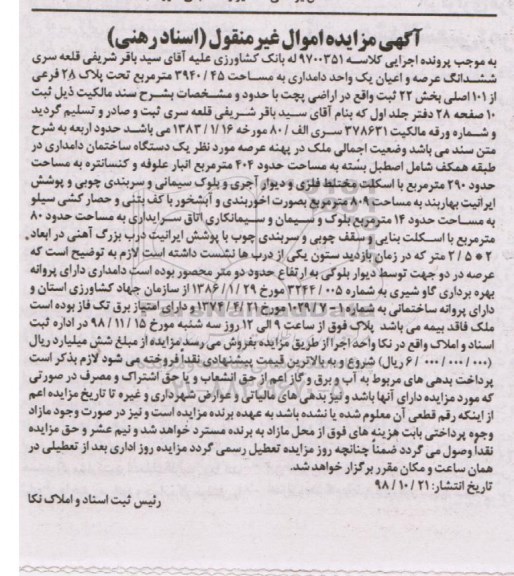 آگهی مزایده اموال غیر منقول (اسناد رهنی)
به موجب پرونده اجرایی کلاسه ۹۷۰۰۳۵۱ له بانک کشاورزی علیه آقای سید باقر شریفی قلعه سری
ششدانگ عرصه و اعیان یک واحد دامداری به مساحت ۳۹۴۰/۴۵ مترمربع تحت پلاک ۲۸ فرعی
از ۱۰۱ اصلی بخش ۲۲ ثبت واقع در اراضی پچت با حدود و مشخصات بشرح سند مالکیت ذیل ثبت
۱۰ صفحه ۲۸ دفتر جلد اول که بنام آقای سید باقر شریفی قلعه سری ثبت و صادر و تسلیم گردید
و شماره ورقه مالکیت ۳۷۸۶۳۱ سری الف/۸۰ مورخه ۱۳۸۳/۱/۱۶ می باشد حدود اربعه به شرح
متن سند می باشد وضعیت اجمالی ملک در پهنه عرصه مورد نظر یک دستگاه ساختمان دامداری در
طبقه همکف شامل اصطبل بسته به مساحت حدود ۴۰۴ مترمربع انبار علوفه و کنسانتره به مساحت
حدود ۲۹۰ مترمربع با اسکلت مختلط فلزی و دیوار آجری و بلوک سیمانی و سربندی چوبی و پوشش
ایرانیت بهاربند به مساحت ۸۰۹ مترمربع بصورت آخوربندی و آبشخور با کف بتنی و حصار کشی سیلو
به مساحت حدود ۱۴ مترمربع بلوک و سیمان و سیمانکاری اتاق سرایداری به مساحت حدود ۸۰
مترمربع با اسکلت بنایی و سقف چوبی و سربندی چوب با پوشش ایرانیت درب بزرگ آهنی در ابعاد
۲*۲/۵ متر که در زمان بازدید ستون یکی از درب ها نشست داشته است لازم به توضیح است که
عرصه در دو جهت توسط دیوار بلوکی به ارتفاع حدود دو متر محصور بوده است دامداری دارای پروانه
بهره برداری گاو شیری به شماره ۳۲۴۴/۰۰۵ مورخ ۱۳۸۶/۱/۲۹ از سازمان جهاد کشاورزی استان و
دارای پروانه ساختمانی به شماره ۰۲۹۲۷-۱ مورخ ۱۳۷۴/۴/۲۱ و دارای امتیاز برق تک فاز بوده است
ملک فاقد بیمه می باشد پلاک فوق از ساعت ۹ الی ۱۲ روز سه شنبه مورخ ۹۸/۱۱/۱۵ در اداره ثبت
اسناد و املاک واقع در نکا واحد اجرا از طریق مزایده بفروش می رسد مزایده از مبلغ شش میلیارد ریال
(۶/۰۰۰/۰۰۰/۰۰۰ ریال) شروع و به بالاترین قیمت پیشنهادی نقدا فروخته می شود لازم بذکر است
پرداخت بدهی های مربوط به آب و برق و گاز اعم از حق انشعاب و یا حق اشتراک و مصرف در صورتی
که مورد مزایده دارای آنها باشد و نیز بدهی های مالیاتی و عوارض شهرداری و غیره تا تاریخ مزایده اعم
از اینکه رقم قطعی آن معلوم شده یا نشده باشد به عهده برنده مزایده است و نیز در صورت وجود مازاد
وجوه پرداختی بابت هزینه های فوق از محل مازاد به برنده مسترد خواهد شد و نیم عشر و حق مزایده
نقدا وصول می گردد ضمناً چنانچه روز مزایده تعطیل رسمی گردد مزایده روز اداری بعد از تعطیلی در
همان ساعت و مکان مقرر برگزار خواهد شد.
تاریخ انتشار: ۹۸/۱۰/۲۱
رئیس ثبت اسناد و املاک نکا